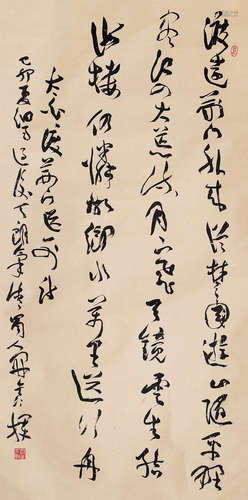 渡远荆门外来从楚国游山随平野
尽江入大荒流月下飞天镜云生结
海楼仍怜故乡水万里送行舟
太白渡荆门送别诗
己卯夏细雨